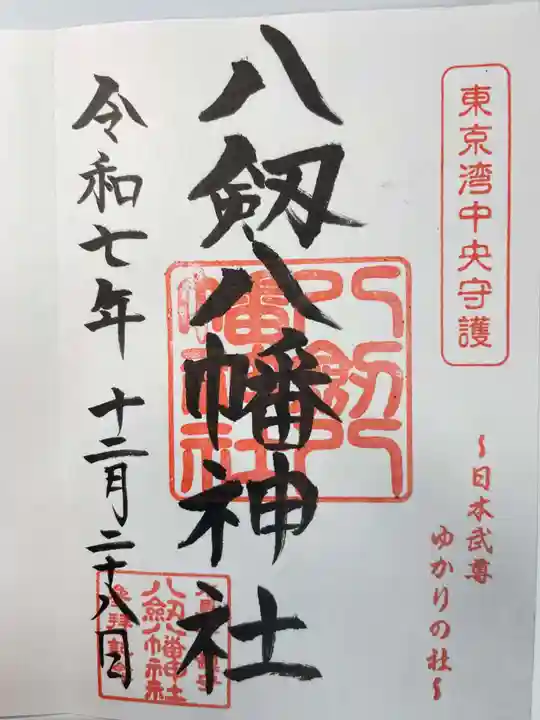 東京湾中央守護
～日本武尊
ゆかりの社～
八剱八幡神社
八剱八幡神社
令和七年 十二月二十八日
八剱八幡神社